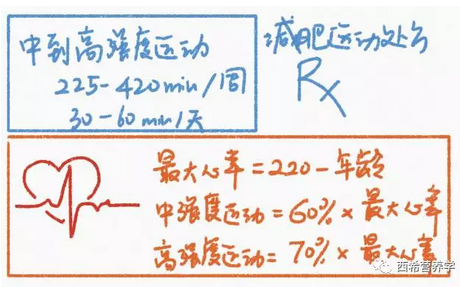 中到高强度运动
225-420min/周
30-60min/天
减肥运动处方
Rx
最大心率=220-年龄
中强度运动=60%×最大心率
高强度运动=70%×最大心率
西希营养学